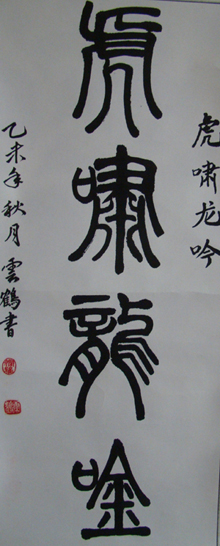 虎啸龙吟
虎嘯龍唫
乙未年秋月雲鶴書